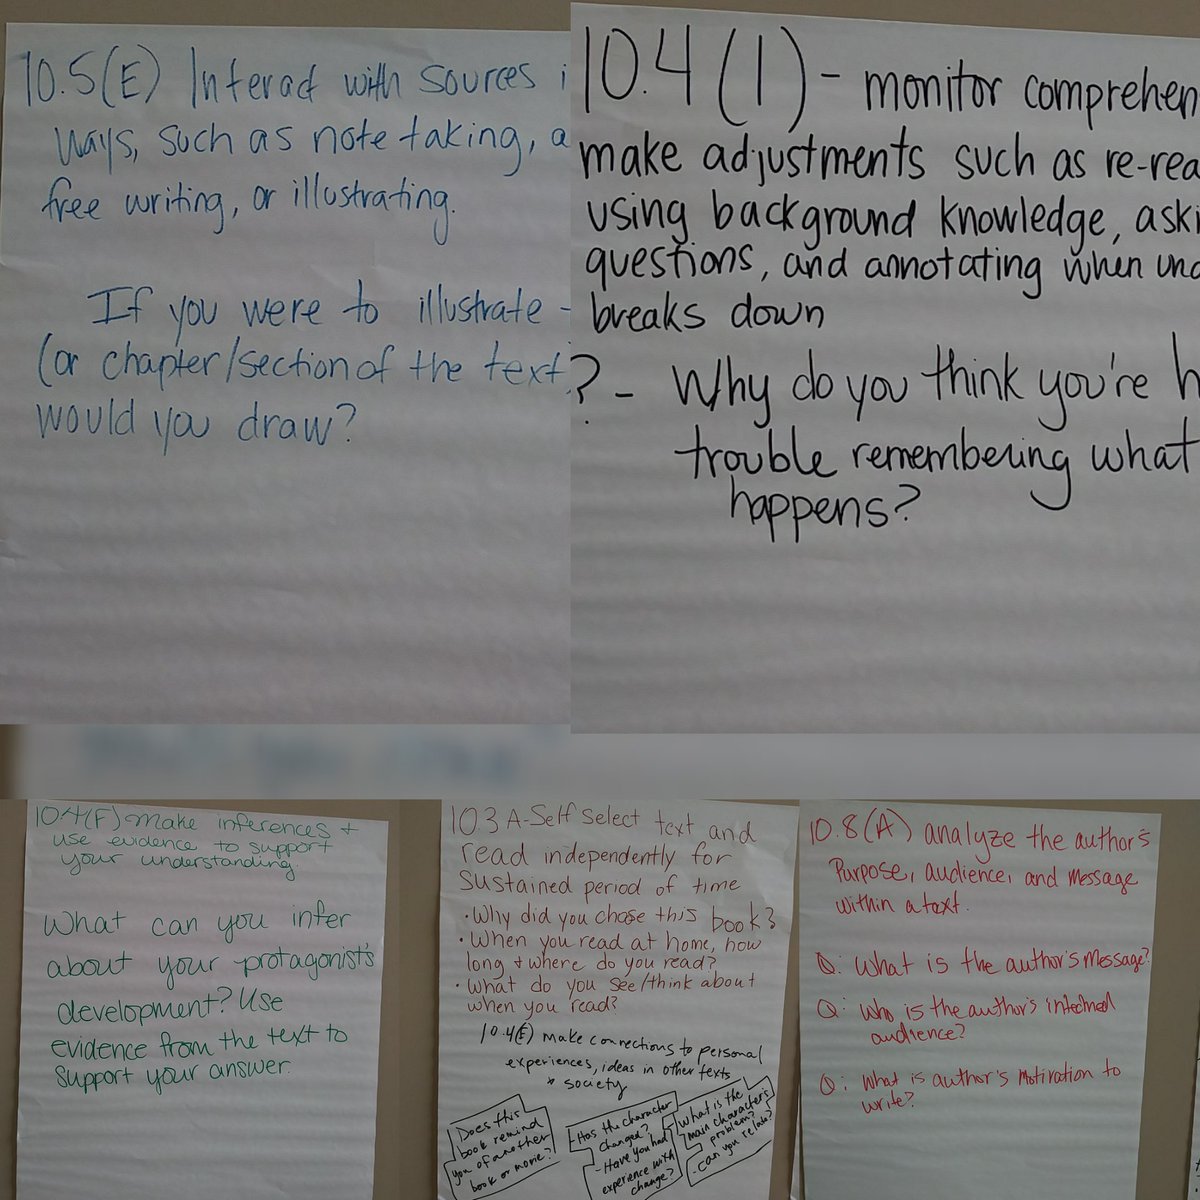 10.5(E) Interact with sources i
ways, such as note taking, a
free writing, or illustrating.
If you were to illustrate -
(or chapter/section of the text
would you draw?
10.4 (I) - monitor comprehen
make adjustments such as re-rea
using background knowledge, aski
questions, and annotating when und
breaks down
? - Why do you think you're h
trouble remembering what
happens?
10.4(F) make inferences +
use evidence to support
your understanding.
What can you infer
about your protagonist's
development? Use
evidence from the text to
support your answer.
10.3 A-Self Select text and
read independently for
sustained period of time
• Why did you chose this book?
• When you read at home, how
long + where do you read?
• What do you see/think about
when you read?
10.4(E) make connections to personal
experiences, ideas in other texts
* society
Does this
book remind
you of another
book or movie?
Has the character
changed?
- Have you had
experience with
change?
What is the
main character's
problem?
- can you relate?
10.8(A) analyze the author's
Purpose, audience, and message
within a text.
Q: What is the author's message?
Q: Who is the author's intended
audience?
Q: What is author's motivation to
write?